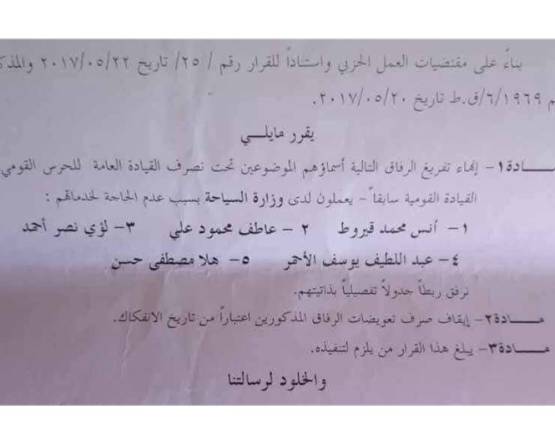 بناءً على مقتضيات العمل الحزبي واستناداً للقرار رقم / ٢٥/ تاريخ ٢٠١٧/٠٥/٢٢
٦/١٩٦٩/ق.ط تاريخ ٢٠١٧/٠٥/٢٠.
يقرر مايلي
مـــادة١- إنهاء تفريغ الرفاق التالية أسماؤهم الموضوعين تحت تصرف القيادة العامة للحرس القومي
القيادة القومية سابقاً- يعملون لدى وزارة السياحة بسبب عدم الحاجة لخدماتهم :
١- أنس محمد قيروط ٢- عاطف محمود علي ٣- لؤي نصر أحمد
٤- عبد اللطيف يوسف الأحمر ٥- هلا مصطفى حسن
نرفق ربطاً جدولاً تفصيلياً بذاتيتهم.
مـــادة٢- إيقاف صرف تعويضات الرفاق المذكورين اعتباراً من تاريخ الانفكاك.
مـــادة٣- يبلغ هذا القرار من يلزم لتنفيذه.
والخلود لرسالتنا